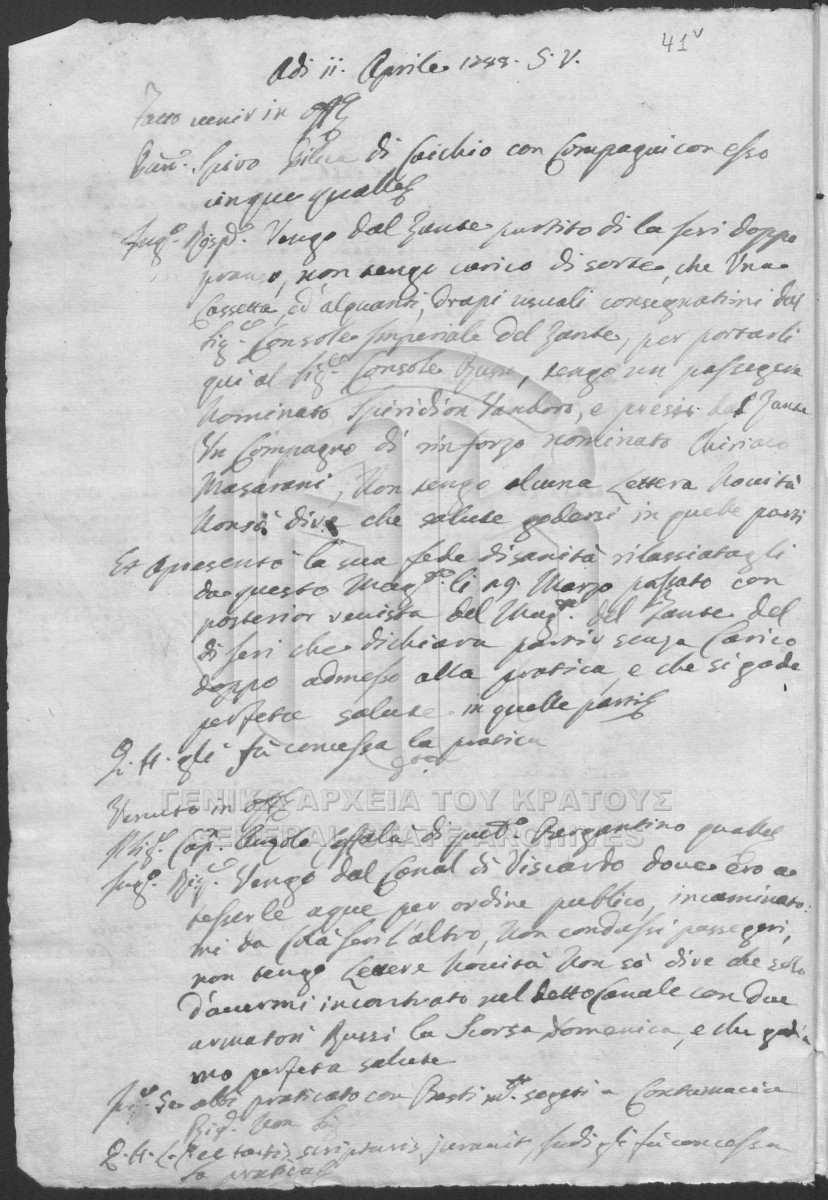 41v
Adi ii. Aprile 1788. S. V.
Fatto venir in Off
Spiro di Caichio con Compagni con esso
cinque quali
Int. Risp. Vengo dal Zante partito di la jeri doppo
pranso, non tengo carico di sorte, che Una
Cassetta, ed alquanti drapi usuali consegnatimi dal
Sig. Console Imperiale del Zante, per portarli
qui al Sig. Console Russo, tengo un passegiere
Nominato Spiridion, e presi dal Zante
Un Compagno di rinforzo nominato Chiriaco
Masarani, Non tengo alcuna Lettera Novità
Non sò dire che salute godersi in quelle parti
Et apresentò la sua fede di sanità rilassiatagli
da questo Mag.to li 29 Marzo passato con
posterior revista del Mag.to del Zante del
di jeri che dichiara partir senza Carico
doppo admesso alla pratica, e che si gode
perfeta salute in quelle parti
Q. H. gli fù concessa la pratica
ΓΕΝΙΚΑ ΑΡΧΕΙΑ ΤΟΥ ΚΡΑΤΟΥΣ
GENERAL STATE ARCHIVES
Venuto in Off
Il Sig. Cap. Angolo di Bergantino quale
Int. Risp. Vengo dal Canal di Viscardo dove ero a
tesserle aque per ordine publico, incaminato
mi da colà jeri l'altro, Non condussi passegeri,
non tengo Lettere Novità Non sò dire che solo
d'avermi incontrato nel detto Canale con due
armatori Russi la Scorsa Domenica, e che godia
mo perfeta salute
Int. Se abbi praticato con Basti sogeti a Contumacia
Risp. Non
Q. H. L. et tactis scripturis juravit, gli fù concessa
la pratica